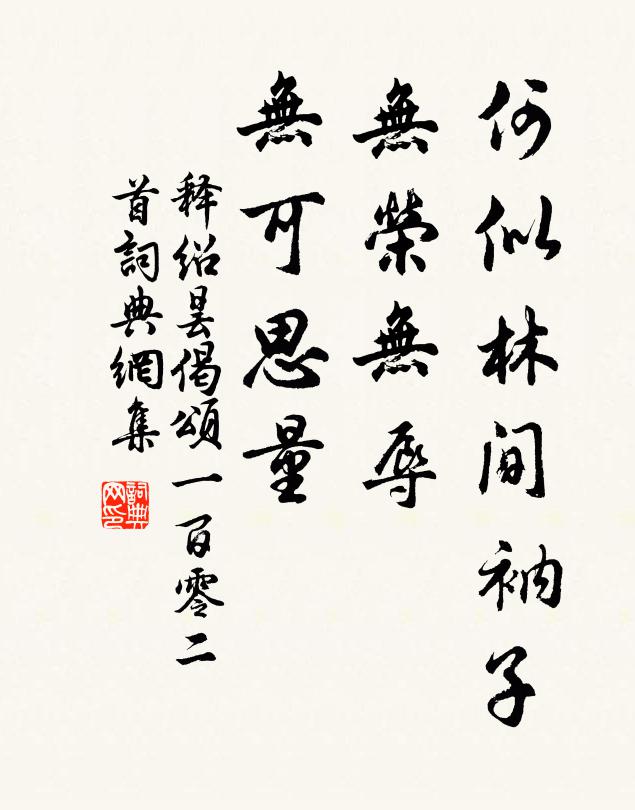 何似林間衲子
無榮無辱
無可思量
释紹曇偈頌一百零二
首詞典網集
詞典
网印